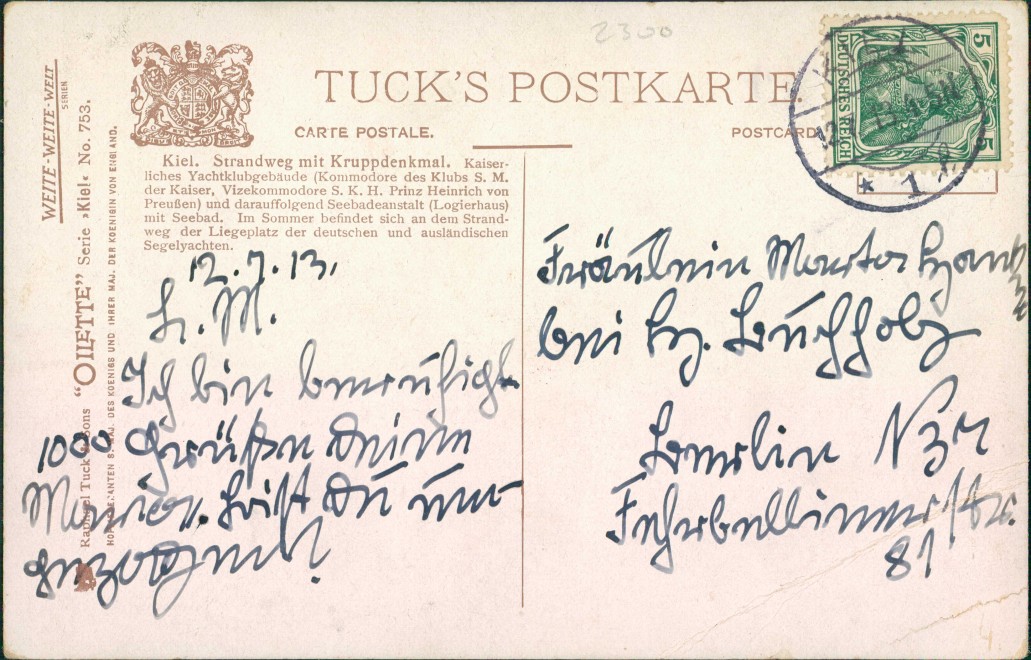 2300
TUCK'S POSTKARTE.
CARTE POSTALE.
POSTCARD
WEITE-WEITE-WELT
SERIEN
Serie »Kiel« No. 753.
Raphael Tuck & Sons "OILETTE"
HOFLIEFERANTEN S. MAJ. DES KOENIGS UND IHRER MAJ. DER KOENIGIN VON ENGLAND.
Kiel. Strandweg mit Kruppdenkmal. Kaiser-
liches Yachtklubgebäude (Kommodore des Klubs S. M.
der Kaiser, Vizekommodore S. K. H. Prinz Heinrich von
Preußen) und darauffolgend Seebadeanstalt (Logierhaus)
mit Seebad. Im Sommer befindet sich an dem Strand-
weg der Liegeplatz der deutschen und ausländischen
Segelyachten.
12.7.13.
L. M.
Ich bin beruhigt
1000 Grüße Deine
Bist Du
DEUTSCHES REICH
5
5
* 1
Fräulein Marta
bei Buchholz
Berlin N
Fehrbellinerstr.
81